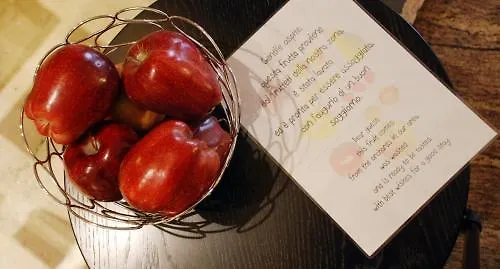 Gentile ospite,
questa frutta proviene
dai frutteti della nostra zona,
è stata lavata
ed è pronta per essere assaggiata
con l'augurio di un buon
soggiorno.
Dear guest,
this fruit comes
from the orchards in our area,
was washed
and is ready to be tasted
with best wishes for a good stay.